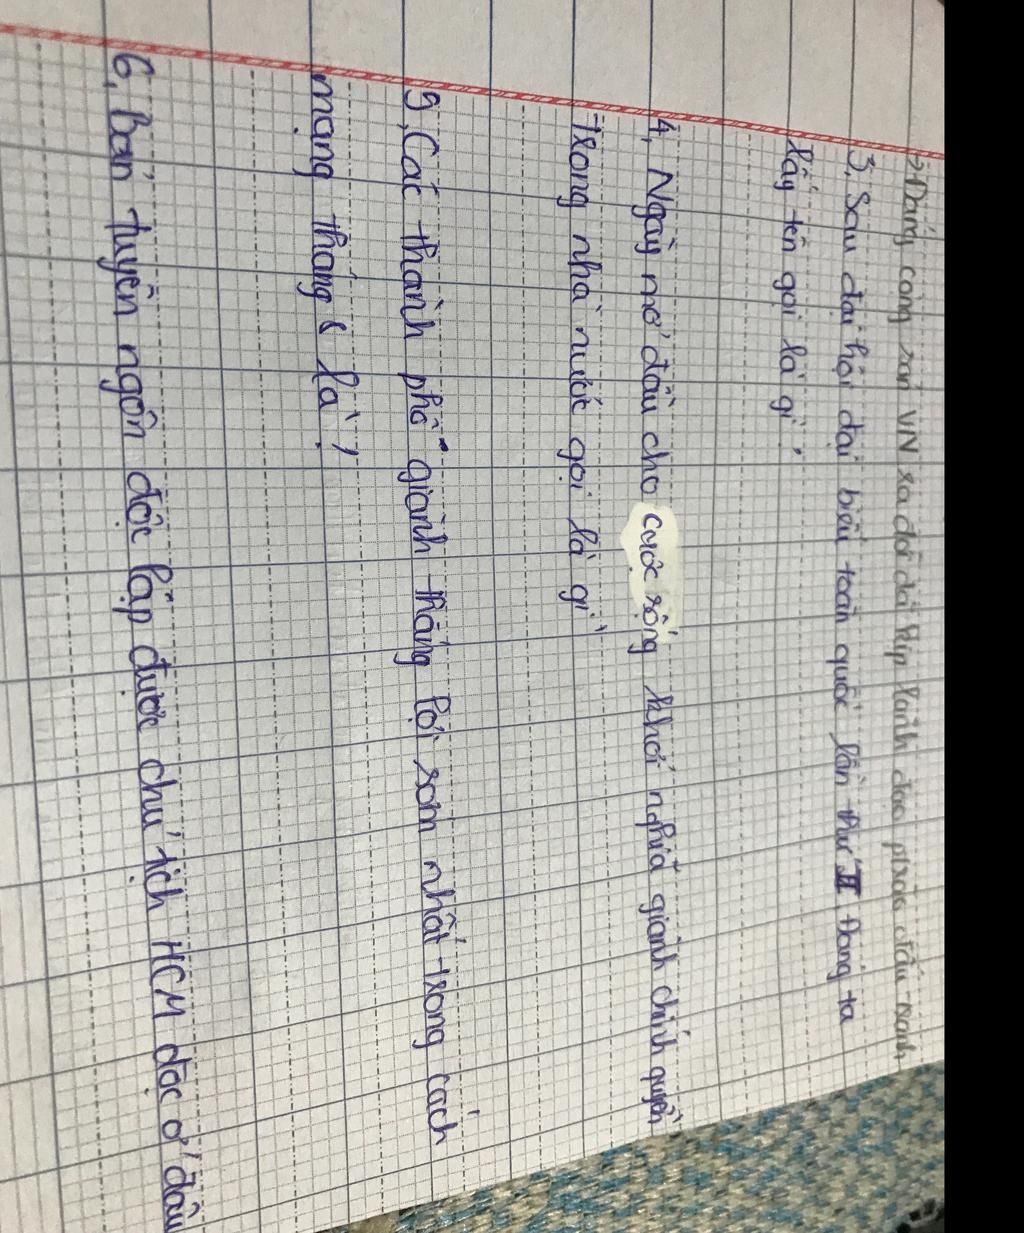 → Đảng cộng sản VN ra đời đã kịp lãnh đạo phong đấu tranh
3, Sau đại hội đại biểu toàn quốc lần thứ II Đảng ta
lấy tên gọi là gì ?
4, Ngày mở đầu cho cuộc sống khởi nghĩa giành chính quyền
trong nhà nước gọi là gì
9, Các thành phố giành thắng lợi sơm nhất trong cách
mạng tháng 8 là ?
6, Bản tuyên ngôn độc lập được chủ tịch HCM đọc ở đâu